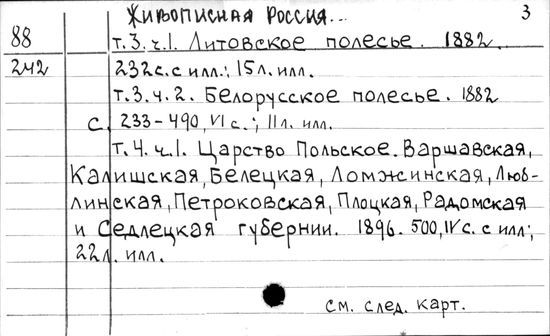 Живописная Россия... 3
88 т.3.ч.1. Литовское полесье. 1882.
242 232с.с илл.; 15л. илл.
т.3.ч.2. Белорусское полесье. 1882
с. 233-490, VI с.; 11л. илл.
т.4.ч.1. Царство Польское. Варшавская,
Калишская, Белецкая, Ломжинская, Люб-
линская, Петроковская, Плоцкая, Радомская
и Седлецкая губернии. 1896. 500, IV с. с илл;,
22л. илл.
см. след. карт.